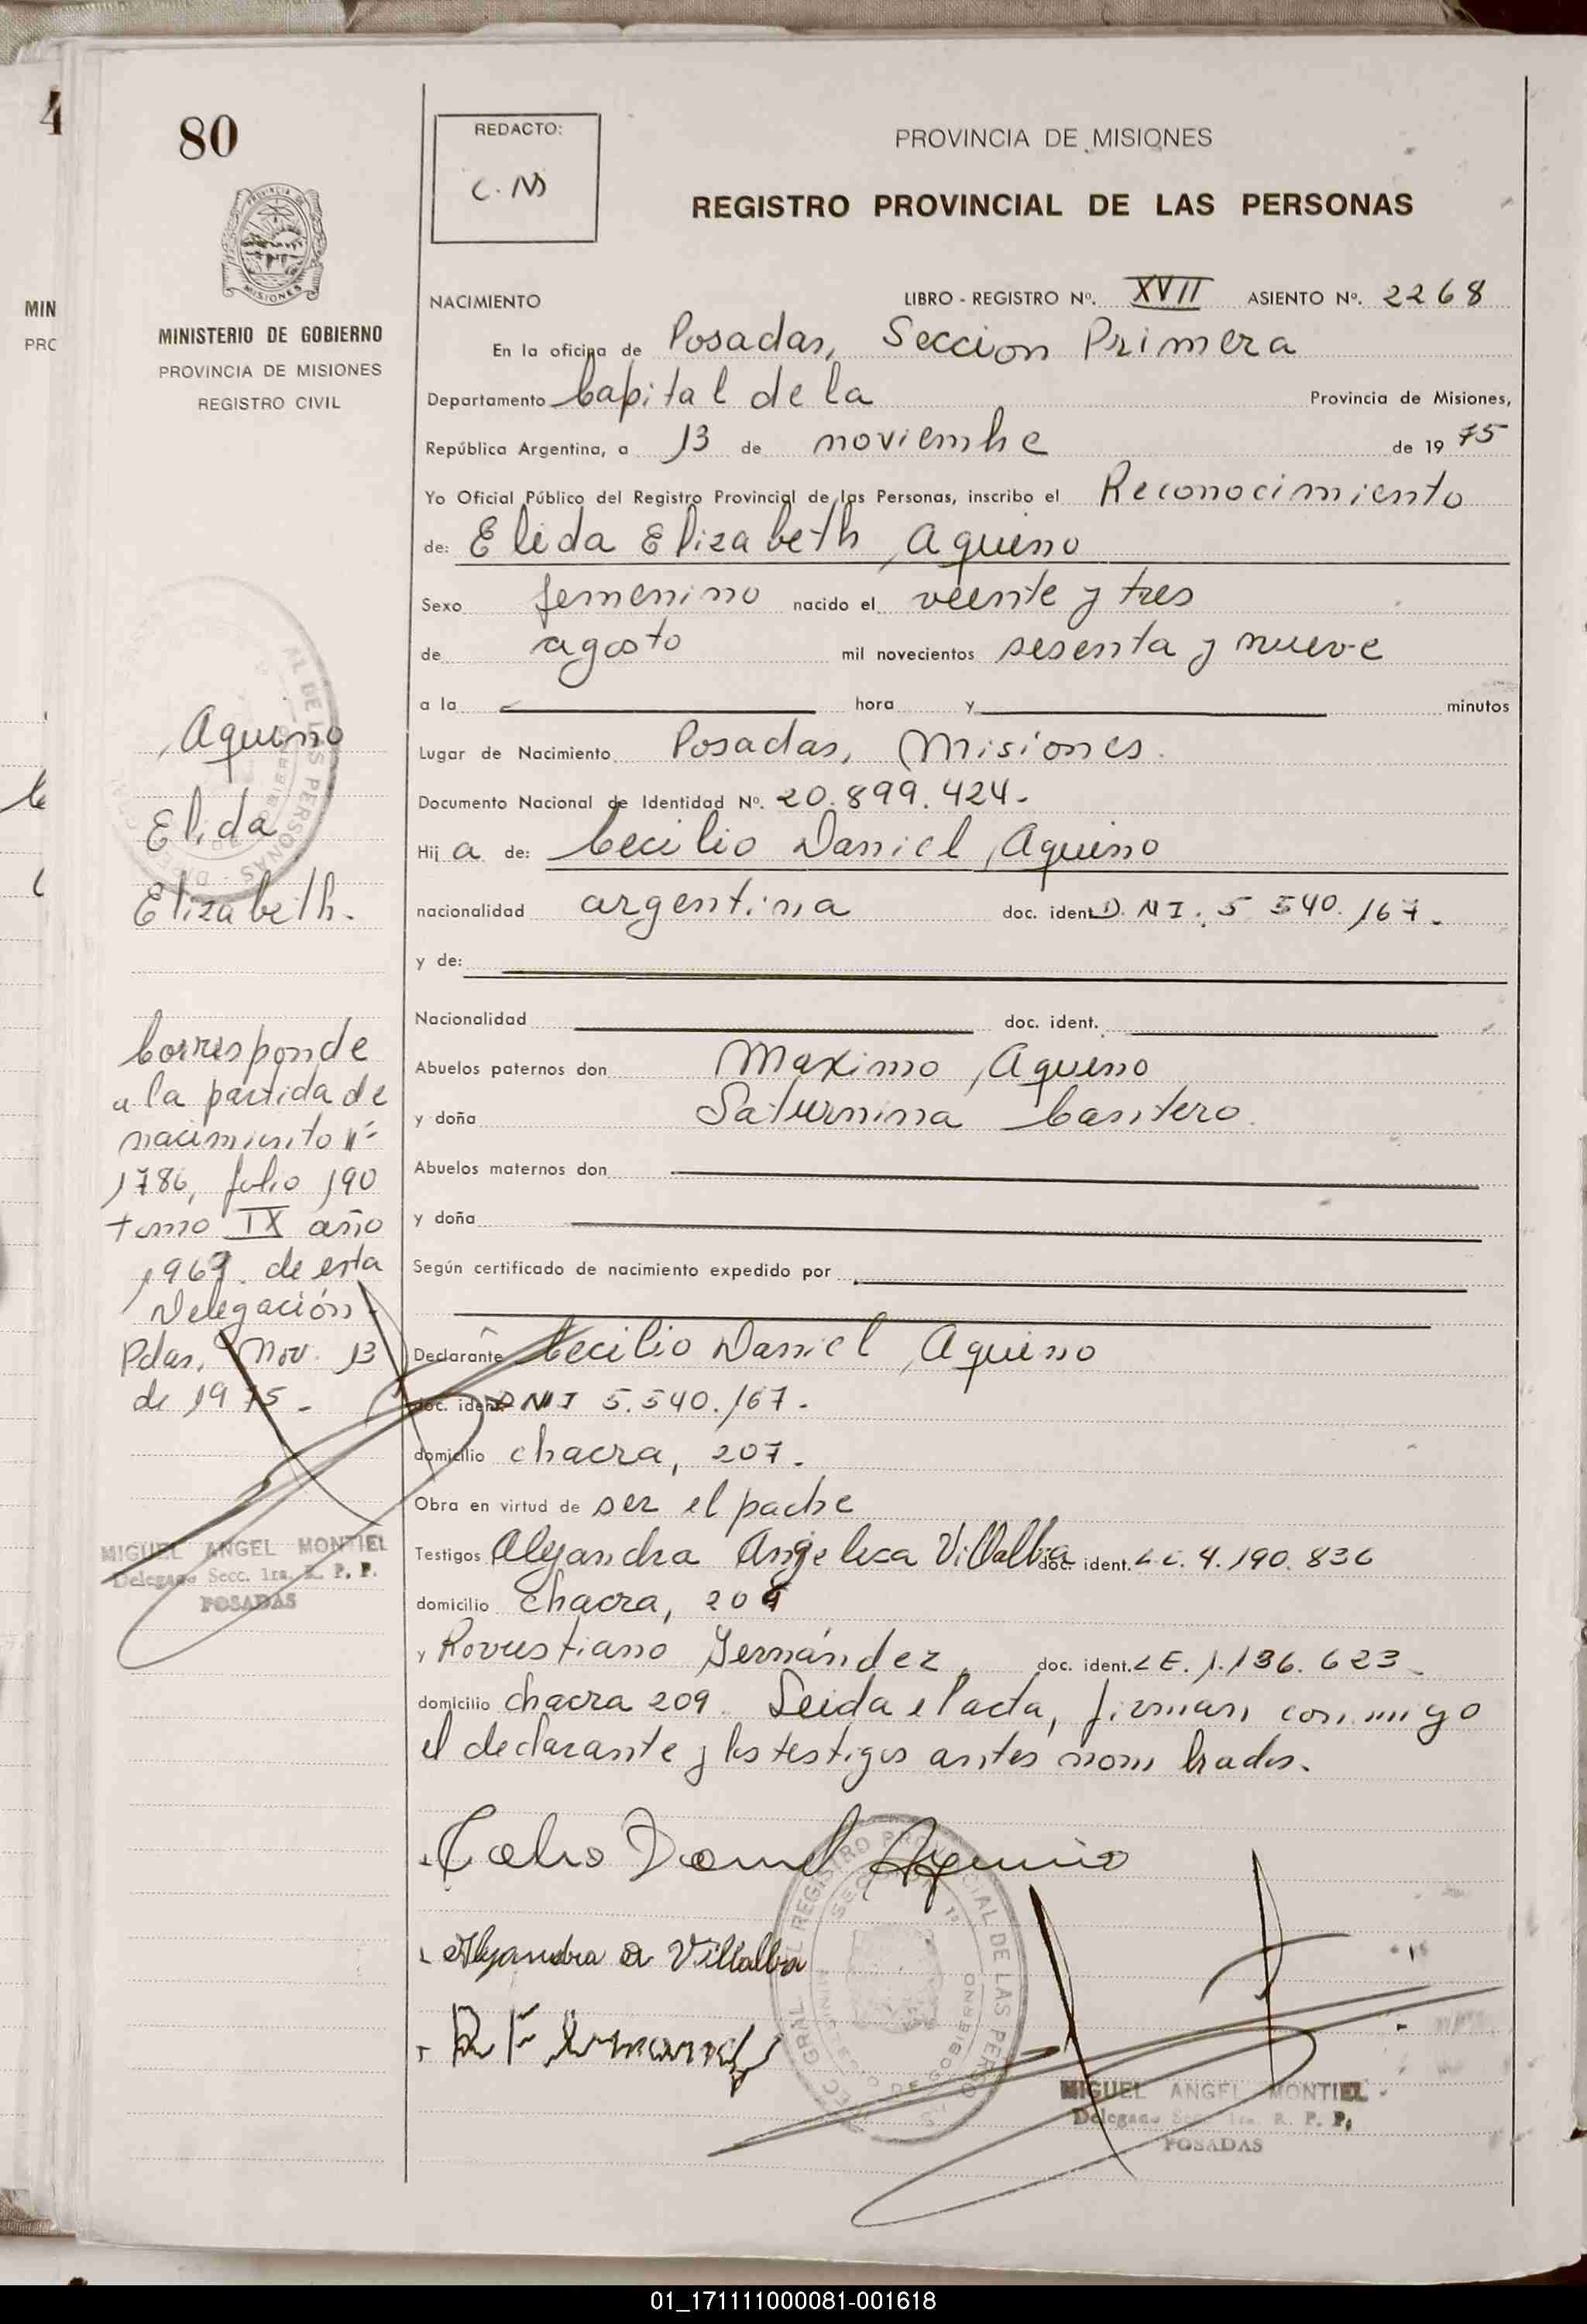 80
MINISTERIO DE GOBIERNO
PROVINCIA DE MISIONES
REGISTRO CIVIL
Aquino
Elida
Elizabeth.
Corresponde
a la partida de
nacimiento nº
1786, folio 190
tomo IX año
1969. de esta
Delegación.
Pdas, Nov. 13
de 1975.-
MIGUEL ANGEL MONTIEL
Delegado Secc. 1ra. R. P. P.
POSADAS
REDACTO:
C. N
PROVINCIA DE MISIONES
REGISTRO PROVINCIAL DE LAS PERSONAS
NACIMIENTO LIBRO - REGISTRO Nº. XVII ASIENTO Nº. 2268
En la oficina de Posadas, Seccion Primera
Departamento Capital de la Provincia de Misiones,
República Argentina, a 13 de noviembre de 1975
Yo Oficial Público del Registro Provincial de las Personas, inscribo el Reconocimiento
de: Elida Elizabeth Aquino
Sexo femenino nacido el veinte y tres
de agosto mil novecientos sesenta y nueve
a la hora y minutos
Lugar de Nacimiento Posadas, Misiones.
Documento Nacional de Identidad Nº. 20.899.424-
Hija de: Cecilio Daniel Aquino
nacionalidad argentina doc. ident. D.N.I. 5 540.167.
y de:
Nacionalidad doc. ident.
Abuelos paternos don Maximo Aquino
y doña Saturnina Cantero.
Abuelos maternos don
y doña
Según certificado de nacimiento expedido por
Declarante Cecilio Daniel Aquino
doc. ident. DNI 5.540.167.
domicilio chacra, 207.
Obra en virtud de ser el padre
Testigos Alejandra Angelica Villalba doc. ident. L.C. 4.190.836
domicilio chacra, 209
y Rovustiano Fernández, doc. ident. LE. 1.136.623
domicilio chacra 209. Leida el acta, firman conmigo
el declarante y los testigos antes nombrados.
Daniel Aquino
Alejandra A Villalba
MIGUEL ANGEL MONTIEL
Delegado Secc. 1ra. R. P. P.
POSADAS
01_171111000081-001618